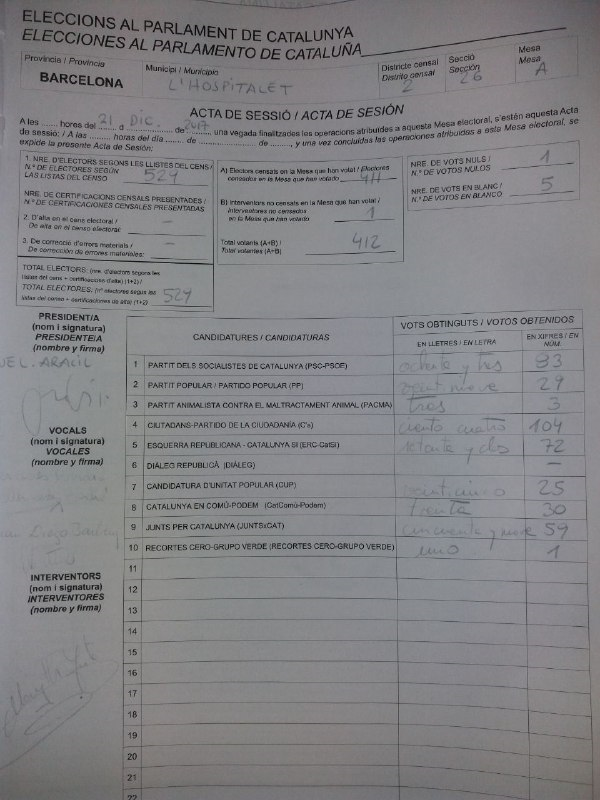 ELECCIONS AL PARLAMENT DE CATALUNYA
ELECCIONES AL PARLAMENTO DE CATALUÑA
Província / Provincia
BARCELONA
Municipi / Municipio
L'HOSPITALET
Districte censal
Distrito censal
2
Secció
Sección
26
Mesa
Mesa
A
ACTA DE SESSIÓ / ACTA DE SESIÓN
A les ...... hores del 21 d DIC. de 2017, una vegada finalitzades les operacions atribuïdes a aquesta Mesa electoral, s'estén aquesta Acta
de sessió: / A las ........ horas del día ....... de .................. de ........, y una vez concluidas las operaciones atribuidas a esta Mesa electoral, se
expide la presente Acta de Sesión:
1. NRE. D'ELECTORS SEGONS LES LLISTES DEL CENS /
N.º DE ELECTORES SEGÚN
LAS LISTAS DEL CENSO 529
NRE. DE CERTIFICACIONS CENSALS PRESENTADES /
N.º DE CERTIFICACIONES CENSALES PRESENTADAS
2. D'alta en el cens electoral /
De alta en el censo electoral: –
3. De correcció d'errors materials /
De corrección de errores materiales: –
TOTAL ELECTORS: (nre. d'electors segons les
llistes del cens + certificacions d'alta) (1+2) /
TOTALES ELECTORES: (nº electores según las
listas del censo + certificaciones de alta) (1+2) 529
A) Electors censats en la Mesa que han votat / Electores
censados en la Mesa que han votado 411
B) Interventors no censats en la Mesa que han votat /
Interventores no censados
en la Mesa que han votado 1
Total votants (A+B) /
Total votantes (A+B) 412
NRE. DE VOTS NULS /
N.º DE VOTOS NULOS 1
NRE. DE VOTS EN BLANC /
N.º DE VOTOS EN BLANCO 5
PRESIDENT/A
(nom i signatura)
PRESIDENTE/A
(nombre y firma)
UEL. ARACIL
VOCALS
(nom i signatura)
VOCALES
(nombre y firma)
INTERVENTORS
(nom i signatura)
INTERVENTORES
(nombre y firma)
CANDIDATURES / CANDIDATURAS
VOTS OBTINGUTS / VOTOS OBTENIDOS
EN LLETRES / EN LETRA
EN XIFRES / EN NÚM.
1 PARTIT DELS SOCIALISTES DE CATALUNYA (PSC-PSOE) ochenta y tres 83
2 PARTIT POPULAR / PARTIDO POPULAR (PP) 29
3 PARTIT ANIMALISTA CONTRA EL MALTRACTAMENT ANIMAL (PACMA) tres 3
4 CIUTADANS-PARTIDO DE LA CIUDADANÍA (C's) ciento cuatro 104
5 ESQUERRA REPUBLICANA - CATALUNYA SÍ (ERC-CatSí) setenta y dos 72
6 DIÀLEG REPUBLICÀ (DIÀLEG) –
7 CANDIDATURA D'UNITAT POPULAR (CUP) veinticinco 25
8 CATALUNYA EN COMÚ-PODEM (CatComú-Podem) treinta 30
9 JUNTS PER CATALUNYA (JUNTSxCAT) cincuenta y nueve 59
10 RECORTES CERO-GRUPO VERDE (RECORTES CERO-GRUPO VERDE) uno 1
11
12
13
14
15
16
17
18
19
20
21
22